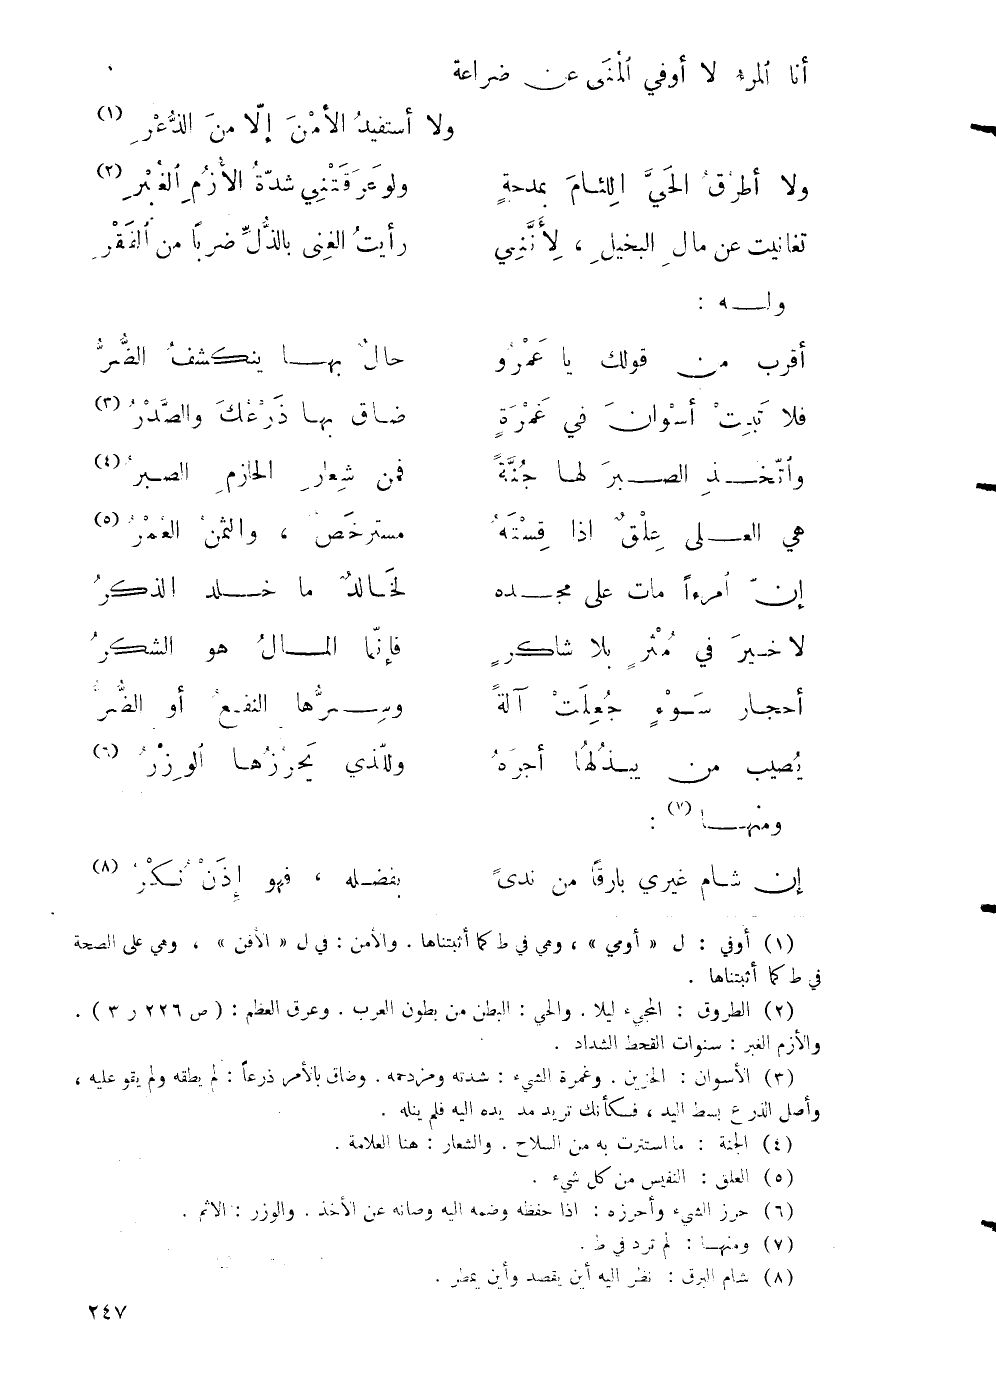 أنا ٱلمرء لا أوفي ٱلْمنَى عن ضراعة
ولا أستفيدُ الأمْنَ إلّا منَ الذُّعْرِ (١)
ولا أطرُقُ الحَيَّ اللِئامَ بمدحةٍ ولو عرَقَتْنِي شدّةُ الأزُمِ ٱلغُبْرِ (٢)
تغانيت عن مال البخيلِ ، لِأَنَّنِي رأيتُ الغِنى بالذُّلِّ ضربًا من ٱلفَقْرِ
ولــه :
أقرب من قولك يا عَمْرُو حالٌ بهــا ينكشفُ الضُّرُّ
فلا تَبِتْ أسْوانَ في غَمْرَةٍ ضاق بها ذَرْعُكَ والصَّدْرُ (٣)
وٱتّخــذِ الصــبرَ لها جُنَّةً فمن شِعارِ الحازمِ الصبرُ (٤)
هي العــلى عِلْقٌ اذا قِسْتَهُ مسترخَصٌ ، والثمنُ الغُمْرُ (٥)
إنّ ٱمرءاً مات على مجــده لخَالدٌ ما خــلد الذكرُ
لا خيرَ في مُثْرٍ بلا شاكرٍ فإنّما المــالُ هو الشكرُ
أحجار سَوْءٍ جُعِلَتْ آلةً وسِــرُّها النفعُ أو الضُّرُّ
يُصيب من يبذُلُها أجرَهُ وللّذي يَحرُزُها ٱلوِزْرُ (٦)
ومنهــا (٧) :
إن شام غيري بارقًا من ندىً بفضله ، فهو إِذَنْ نُكْرُ (٨)
(١) أوفي : ل « أومي » ، وهي في ط كما أثبتناها . والأمن : في ل « الأفن » ، وهي على الصحة
في ط كما أثبتناها .
(٢) الطروق : المجيء ليلا . والحي : البطن من بطون العرب . وعرق العظم : ( ص ٢٢٦ ر ٣ ) .
والأزم الغبر : سنوات القحط الشداد .
(٣) الأسوان : الحزين . وغمرة الشيء : شدته ومزدحمه . وضاق بالأمر ذرعاً : لم يطقه ولم يقو عليه ،
وأصل الذرع بسط اليد ، فكأنك تريد مد يده اليه فلم ينله .
(٤) الجنة : ما استترت به من السلاح . والشعار : هنا العلامة .
(٥) العلق : النفيس من كل شيء .
(٦) حرز الشيء وأحرزه : اذا حفظه وضمه اليه وصانه عن الأخذ . والوزر : الاثم .
(٧) ومنهــا : لم ترد في ط .
(٨) شام البرق : نظر اليه أين يقصد وأين يمطر .
٢٤٧